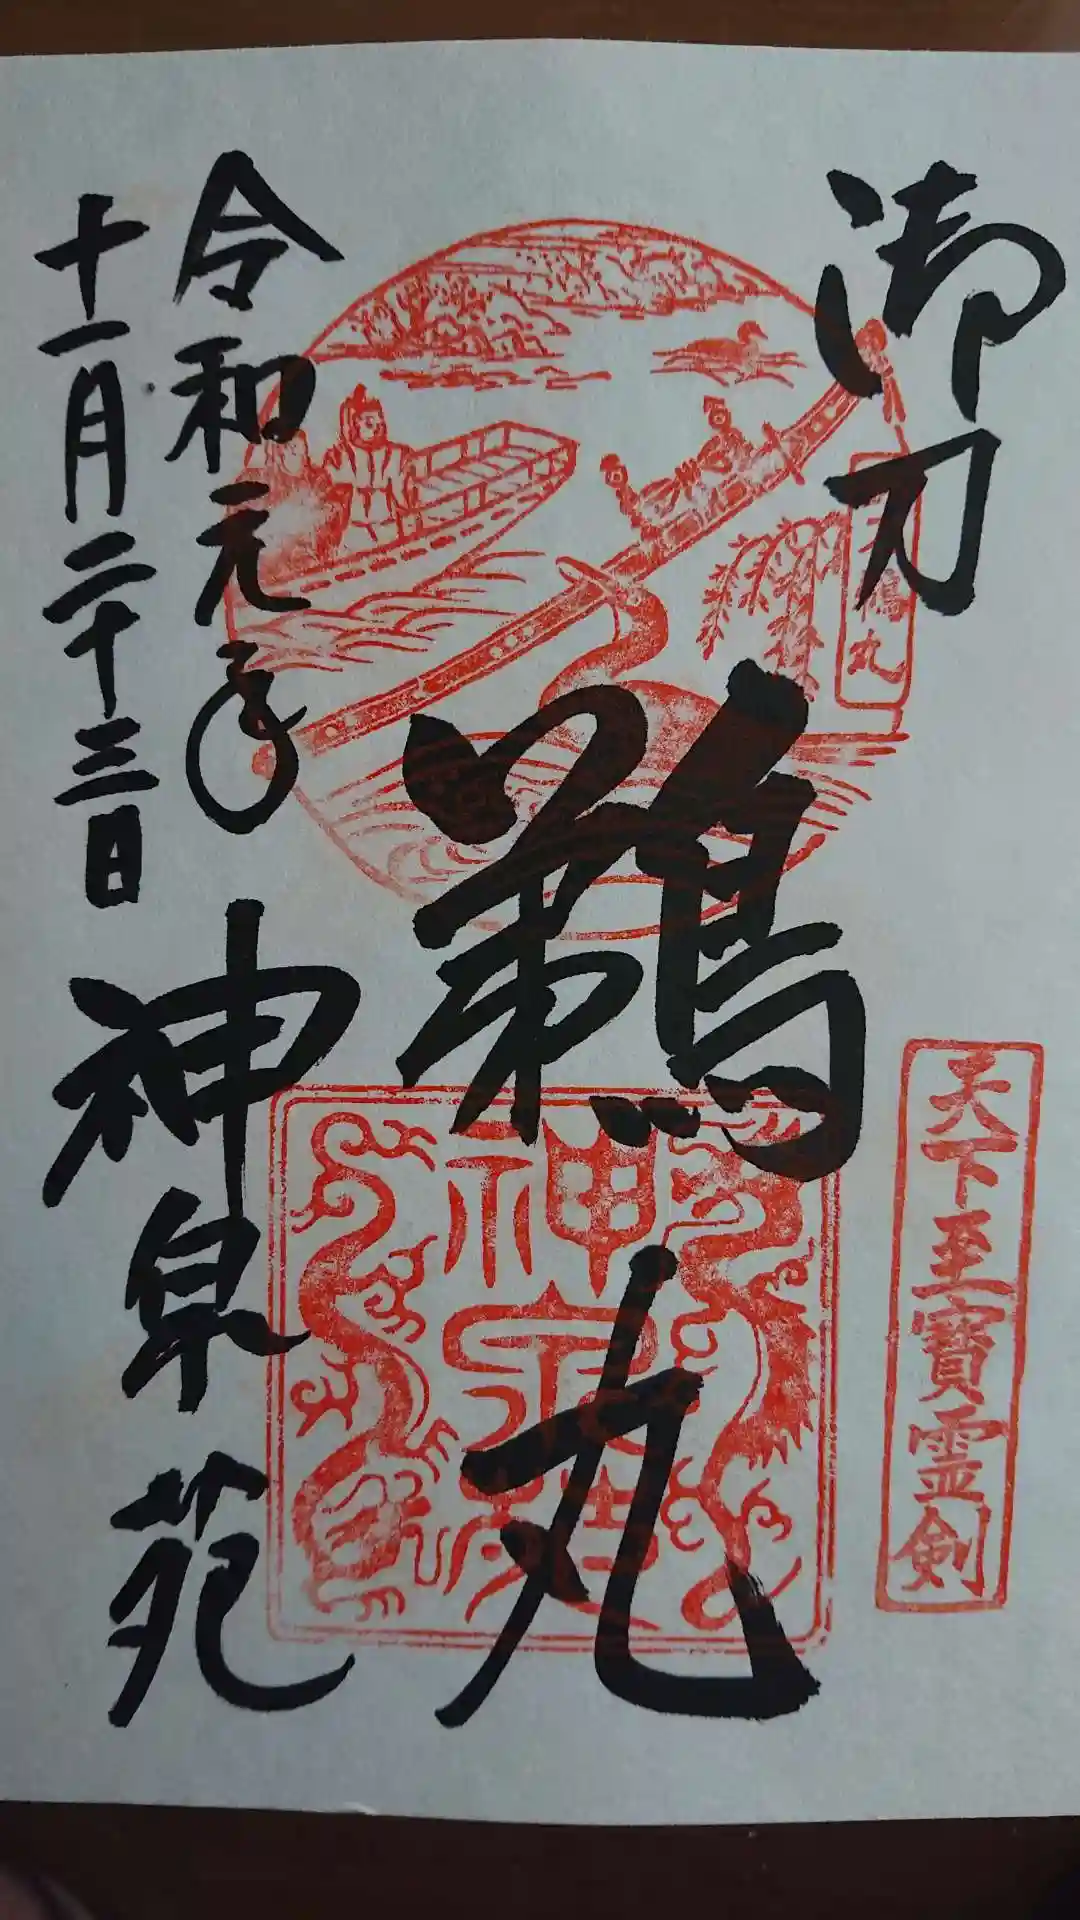 御刀
鵜丸
天下至寶霊剣
神泉苑
令和元年
十一月二十三日
神泉苑